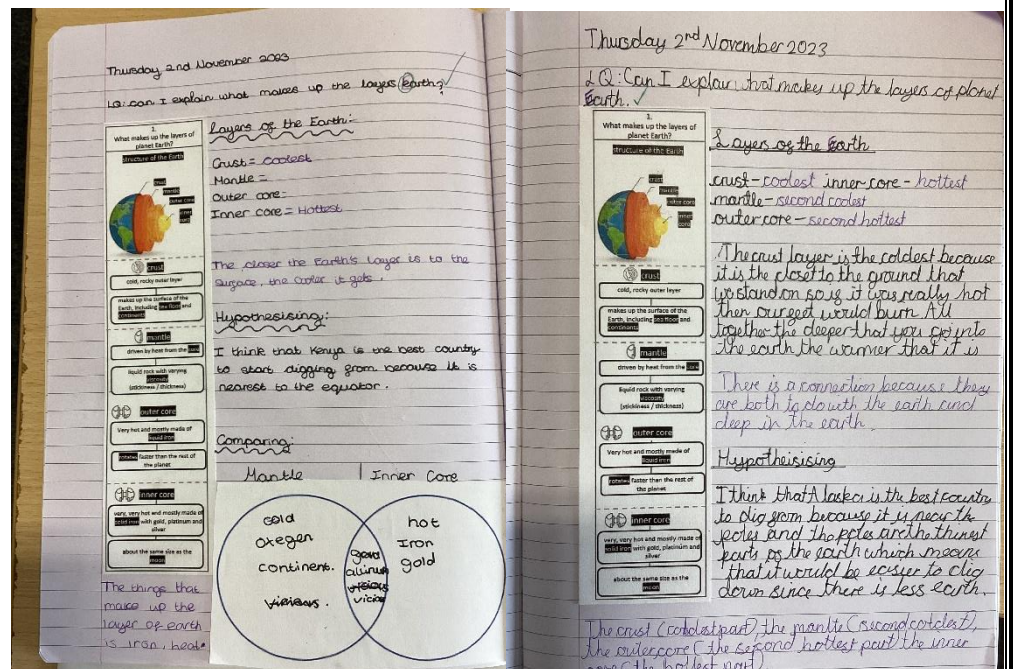 Thursday 2nd November 2023
LQ: Can I explain what makes up the layers Earth?
1.
What makes up the layers of
planet Earth?
structure of the Earth
crust
mantle
outer core
inner
core
crust
cold, rocky outer layer
makes up the surface of the
Earth, including sea floor and
continents
mantle
driven by heat from the core
liquid rock with varying
viscosity
(stickiness / thickness)
outer core
Very hot and mostly made of
liquid iron
rotates faster than the rest of
the planet
inner core
very, very hot and mostly made of
solid iron with gold, platinum and
silver
about the same size as the
moon
The things that
make up the
layer of earth
is iron, heat.
Layers of the Earth:
Crust = Coolest
Mantle =
Outer core =
Inner core = Hottest
The closer the Earth's layer is to the
surface, the cooler it gets
Hypothesising:
I think that Kenya is the best country
to start digging from because it is
nearest to the equator.
Comparing:
Mantle Inner Core
cold
oxegen
continent.
hot
Iron
gold
Thursday 2nd November 2023
LQ: Can I explain that makes up the layers of planet
Earth.
1.
What makes up the layers of
planet Earth?
structure of the Earth
crust
mantle
outer core
inner
core
crust
cold, rocky outer layer
makes up the surface of the
Earth, including sea floor and
continents
mantle
driven by heat from the core
liquid rock with varying
viscosity
(stickiness / thickness)
outer core
Very hot and mostly made of
liquid iron
rotates faster than the rest of
the planet
inner core
very, very hot and mostly made of
solid iron with gold, platinum and
silver
about the same size as the
moon
Layers of the Earth
crust - coolest inner core - hottest
mantle - second coolest
outer core - second hottest
The crust layer is the coldest because
it is the closet to the ground that
we stand on so if it was really hot
then our feet would burn. All
together the deeper that you go into
the earth the warmer that it is
There is a connection because they
are both to do with the earth and
deep in the earth.
Hypotheisising
I think that Alaska is the best country
to dig from because it is near the
poles and the poles are the thinest
parts of the earth which means
that it would be easier to dig
down since there is less earth.
The crust (coldest part), the mantle (second coldest),
the outer core (the second hottest part) the inner
core (the hottest part).